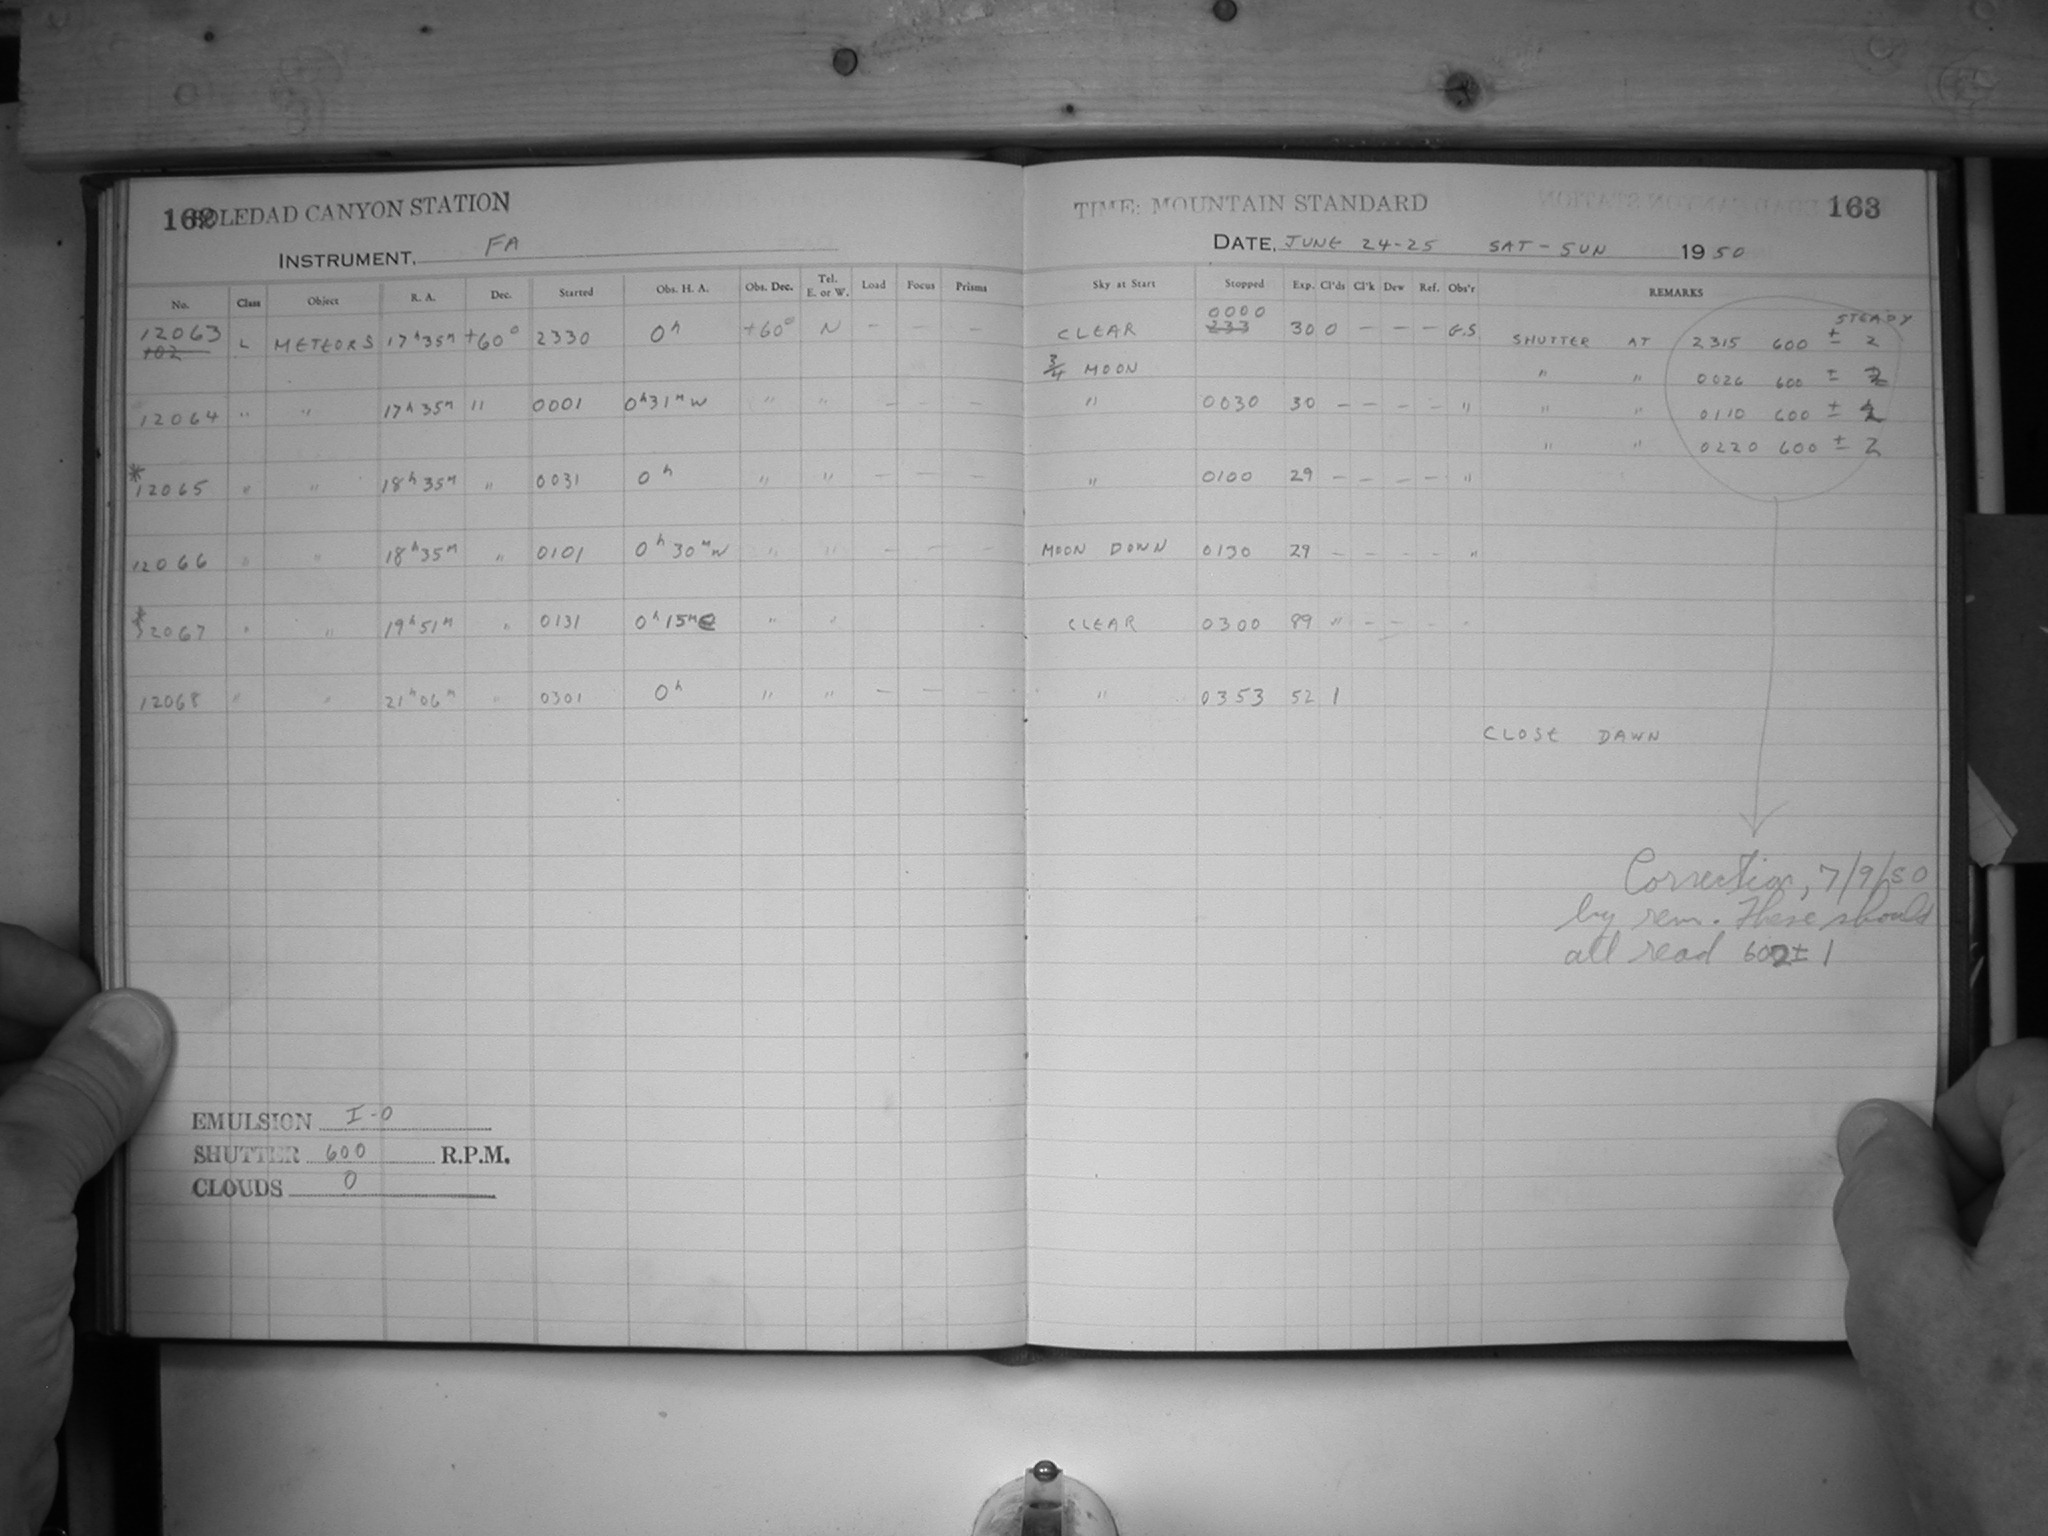 162 SOLEDAD CANYON STATION
INSTRUMENT, FA
No. Class Object R. A. Dec. Started Obs. H. A. Obs. Dec. Tel. E. or W. Load Focus Prisms
12063 L METEORS 17h 35m +60° 2330 0h +60° N - - -
102
12064 " " 17h 35m " 0001 0h 31m W " " - - -
*12065 " " 18h 35m " 0031 0h " " - - -
12066 " " 18h 35m " 0101 0h 30m W " " - - -
*12067 " " 19h 51m " 0131 0h 15m E " "
12068 " " 21h 06m " 0301 0h " " - - -
EMULSION I-O
SHUTTER 600 R.P.M.
CLOUDS 0
TIME: MOUNTAIN STANDARD 163
DATE, JUNE 24-25 SAT-SUN 1950
Sky at Start Stopped Exp. Cl'ds Cl'k Dew Ref. Obs'r REMARKS
0000 STEADY
CLEAR 233 30 0 - - - G.S. SHUTTER AT 2315 600 ± 2
3/4 MOON " " 0026 600 ± 2
" 0030 30 - - - - " " " 0110 600 ± 2
" " 0220 600 ± 2
" 0100 29 - - - - "
MOON DOWN 0130 29 - - - - "
CLEAR 0300 89 " - - - "
" 0353 52 1
CLOSE DAWN
Correction, 7/9/50
by rem. These should
all read 602 ± 1